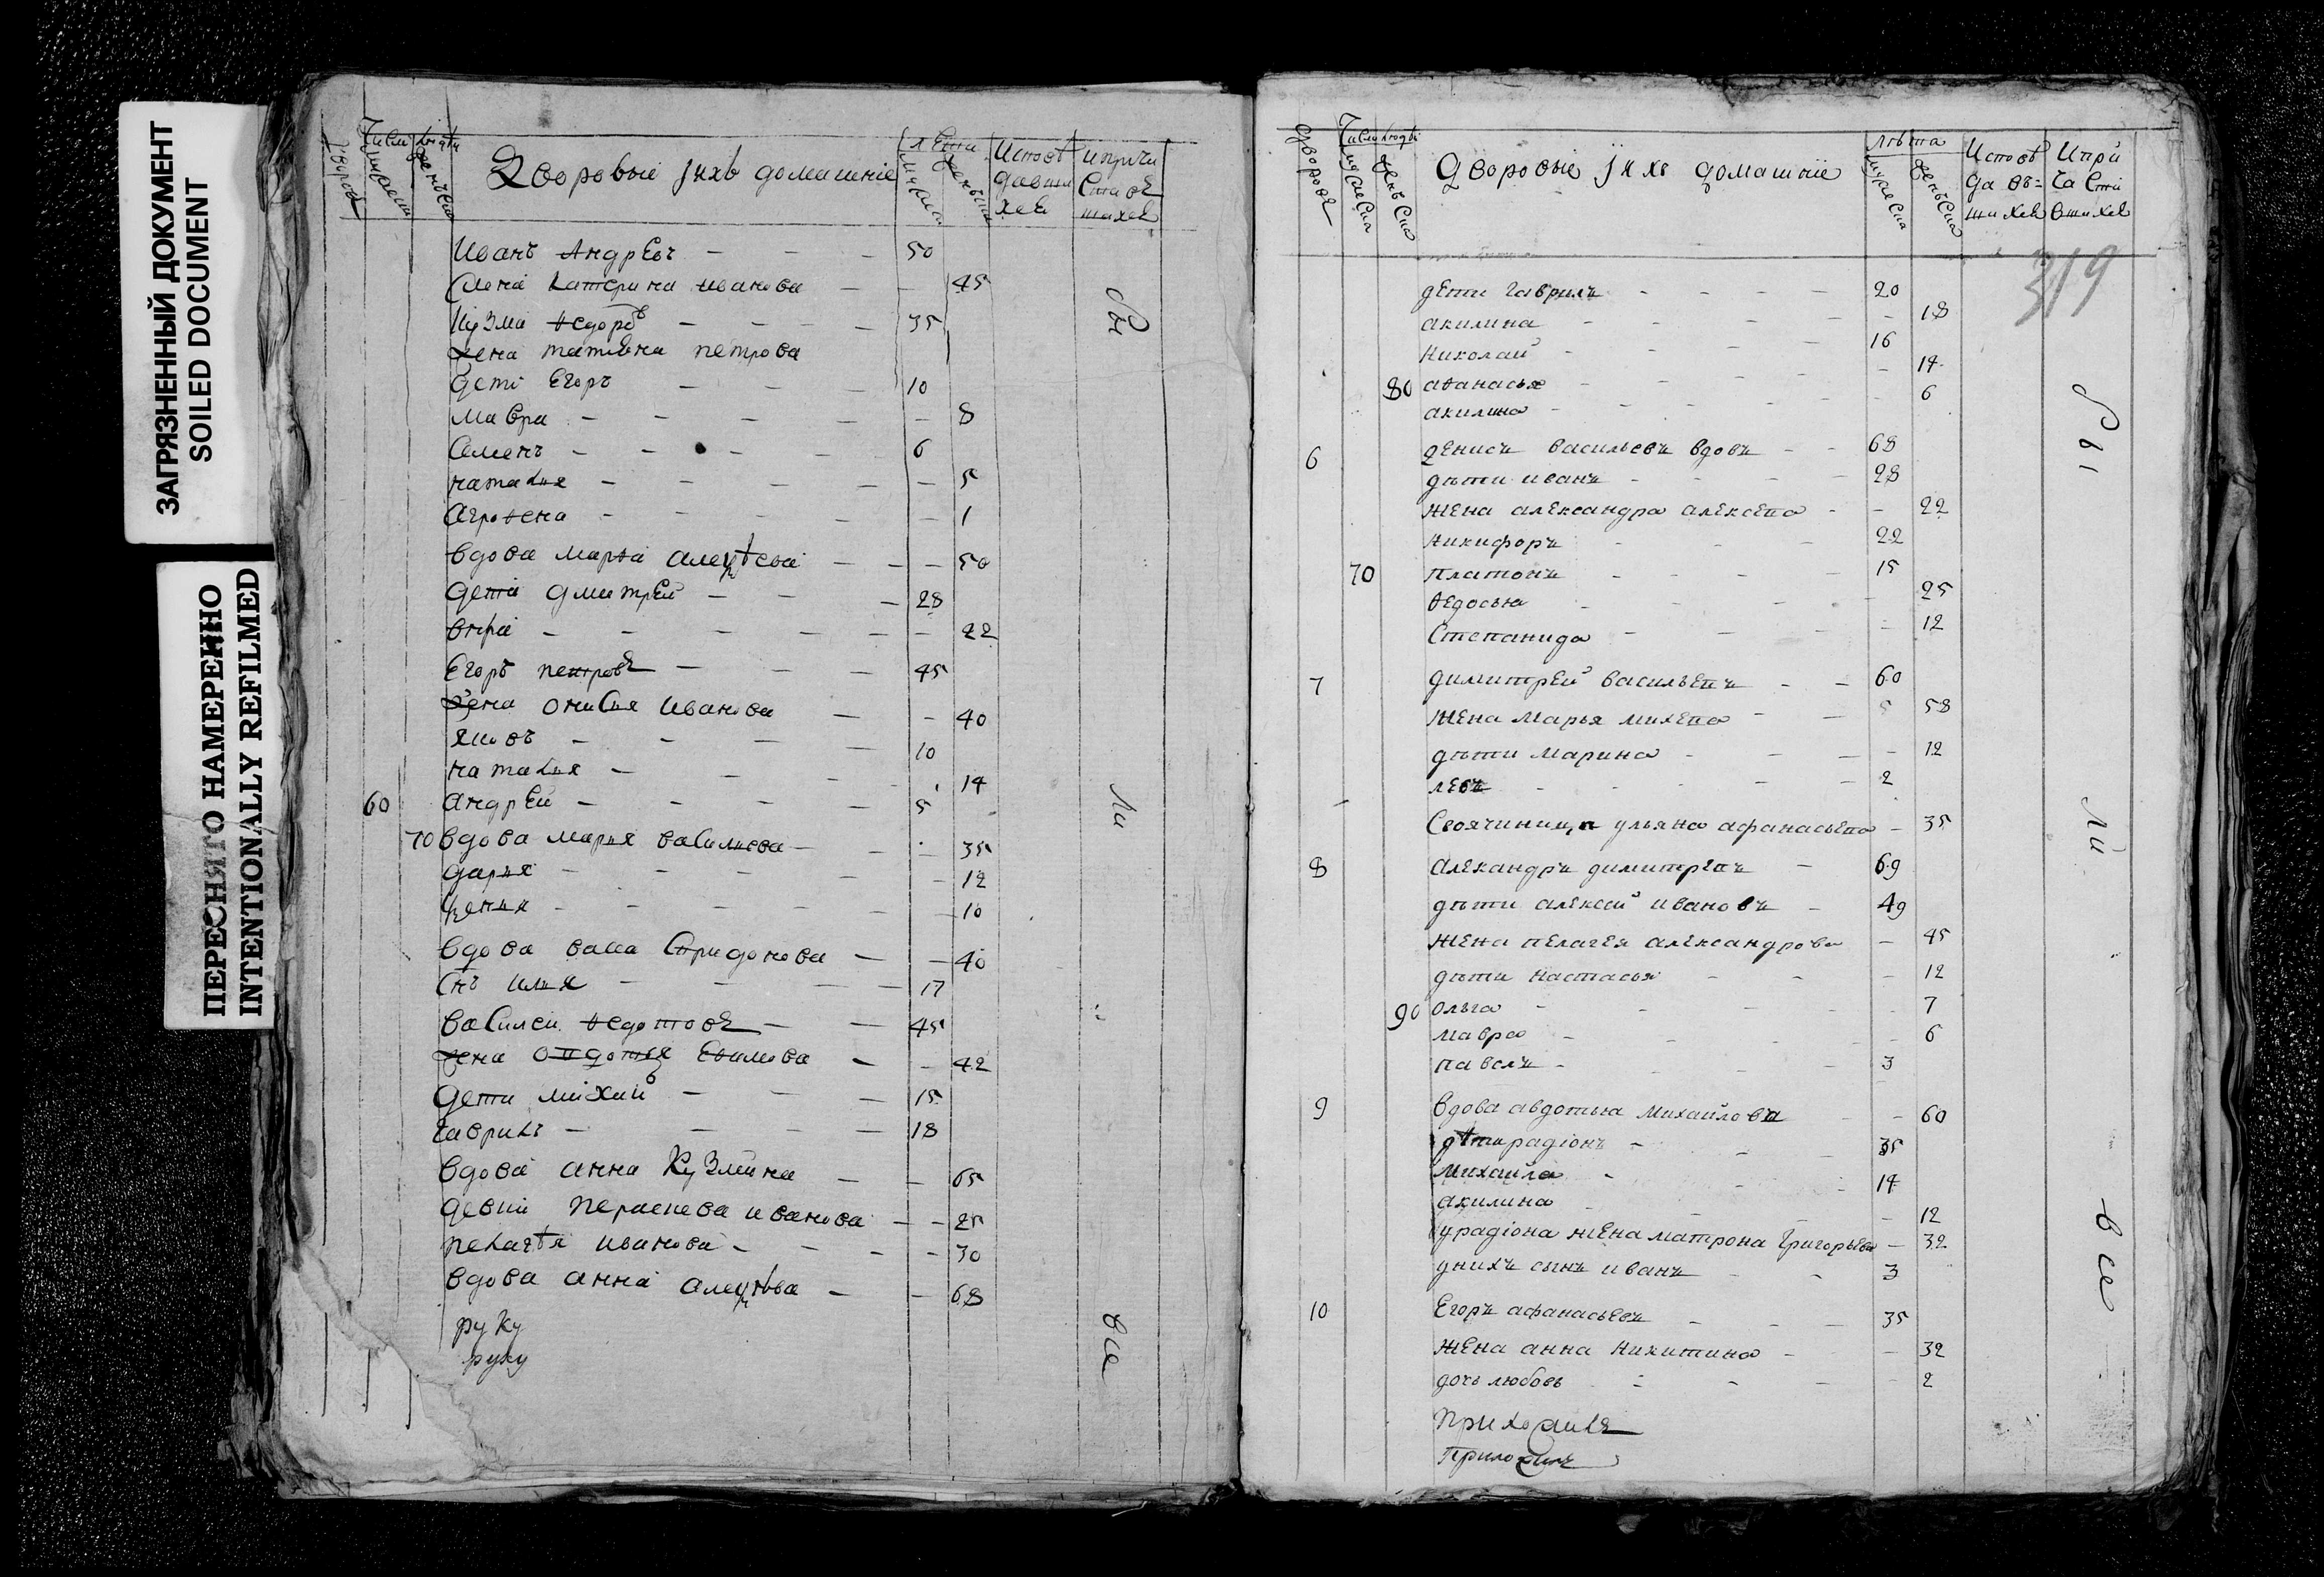 ЗАГРЯЗНЕННЫЙ ДОКУМЕНТ
SOILED DOCUMENT
ПЕРЕСНЯТО НАМЕРЕННО
INTENTIONALLY REFILMED
Дворовыи
Число людѣй
Дворовыі јихъ домашніе
Лѣта
Испов
давши
хсв
ипричи
Иванъ Андреевъ - - - 50
Жена Катерина иванова - - 45
Кузма Ѳедоровъ - - - 35
жена татьяна петрова
Дети Егоръ - - - 10
Мавра - - - - - 8
Семенъ - - - - - 6
наталья - - - - - 5
Агроѳена - - - - - 1
вдова марья алеѯѣева - - - 50
дети дмитрей - - - 28
вира - - - - - - 22
Егоръ петровъ - - - 45
жена онисья Иванова - - 40
Яковъ - - - - 10
наталья - - - 14
60 андрей - - - - 5
70 вдова марья василиева - - - 35
дарья - - - - - 12
Ѯенья - - - - - 10
вдова васса Спридонова - - 40
Снъ илья - - - - 17
василеи Ѳедотовъ - - 45
жена овдотья Евимова - - 42
дети михаи - - - 15
гаврилъ - - - - 18
вдова анна Кузмина - - 65
девки перасиева иванова - - 25
пелагѣя иванова - - - - 30
вдова анна алеѯѣва - - 68
руку
руку
ли
все
дворовъ
Число людѣй
мужеска
женъска
Дворовыіе јихъ домашніе
Лѣта
мужеска
женъска
Исповѣ
да въ=
шихсѧ
Ипри
часті
вшихсѧ
319
дети гаврилъ - - - - 20
акилина - - - - - 18
николай - - - - 16
80 аѳанасья - - - - - 14
акилина - - - - - 6
6 денисъ васильевъ вдовъ - - 68
дѣти иванъ - - - - 28
жена александра алексѣева - - 22
никифоръ - - - 22
70 платонъ - - - - 15
Ѳедосья - - - 25
Степанида - - - - 12
7 димитрей васильевъ - - 60
жена марья михеева - - 58
дѣти марина - - - - 12
левъ - - - - 2
Своячиница ульяна афанасьева - 35
8 александръ димитрѣвъ - 69
дѣти алексѣй ивановъ - 49
жена пелагея александрова - 45
дѣти настасья - - - 12
90 ольга - - - - - 7
мавра - - - - - 6
павелъ - - - - 3
9 вдова авдотья михайлова - - 60
дѣти радіонъ - - - 35
михаила - - - 14
акилина - - - - 12
урадіона жена матрона григорьева - 32
уних сынъ иванъ - - 3
10 Егоръ афанасьевъ - - - 35
жена анна никитина - - 32
дочь любовь - - - - 2
Приходили
ли
все